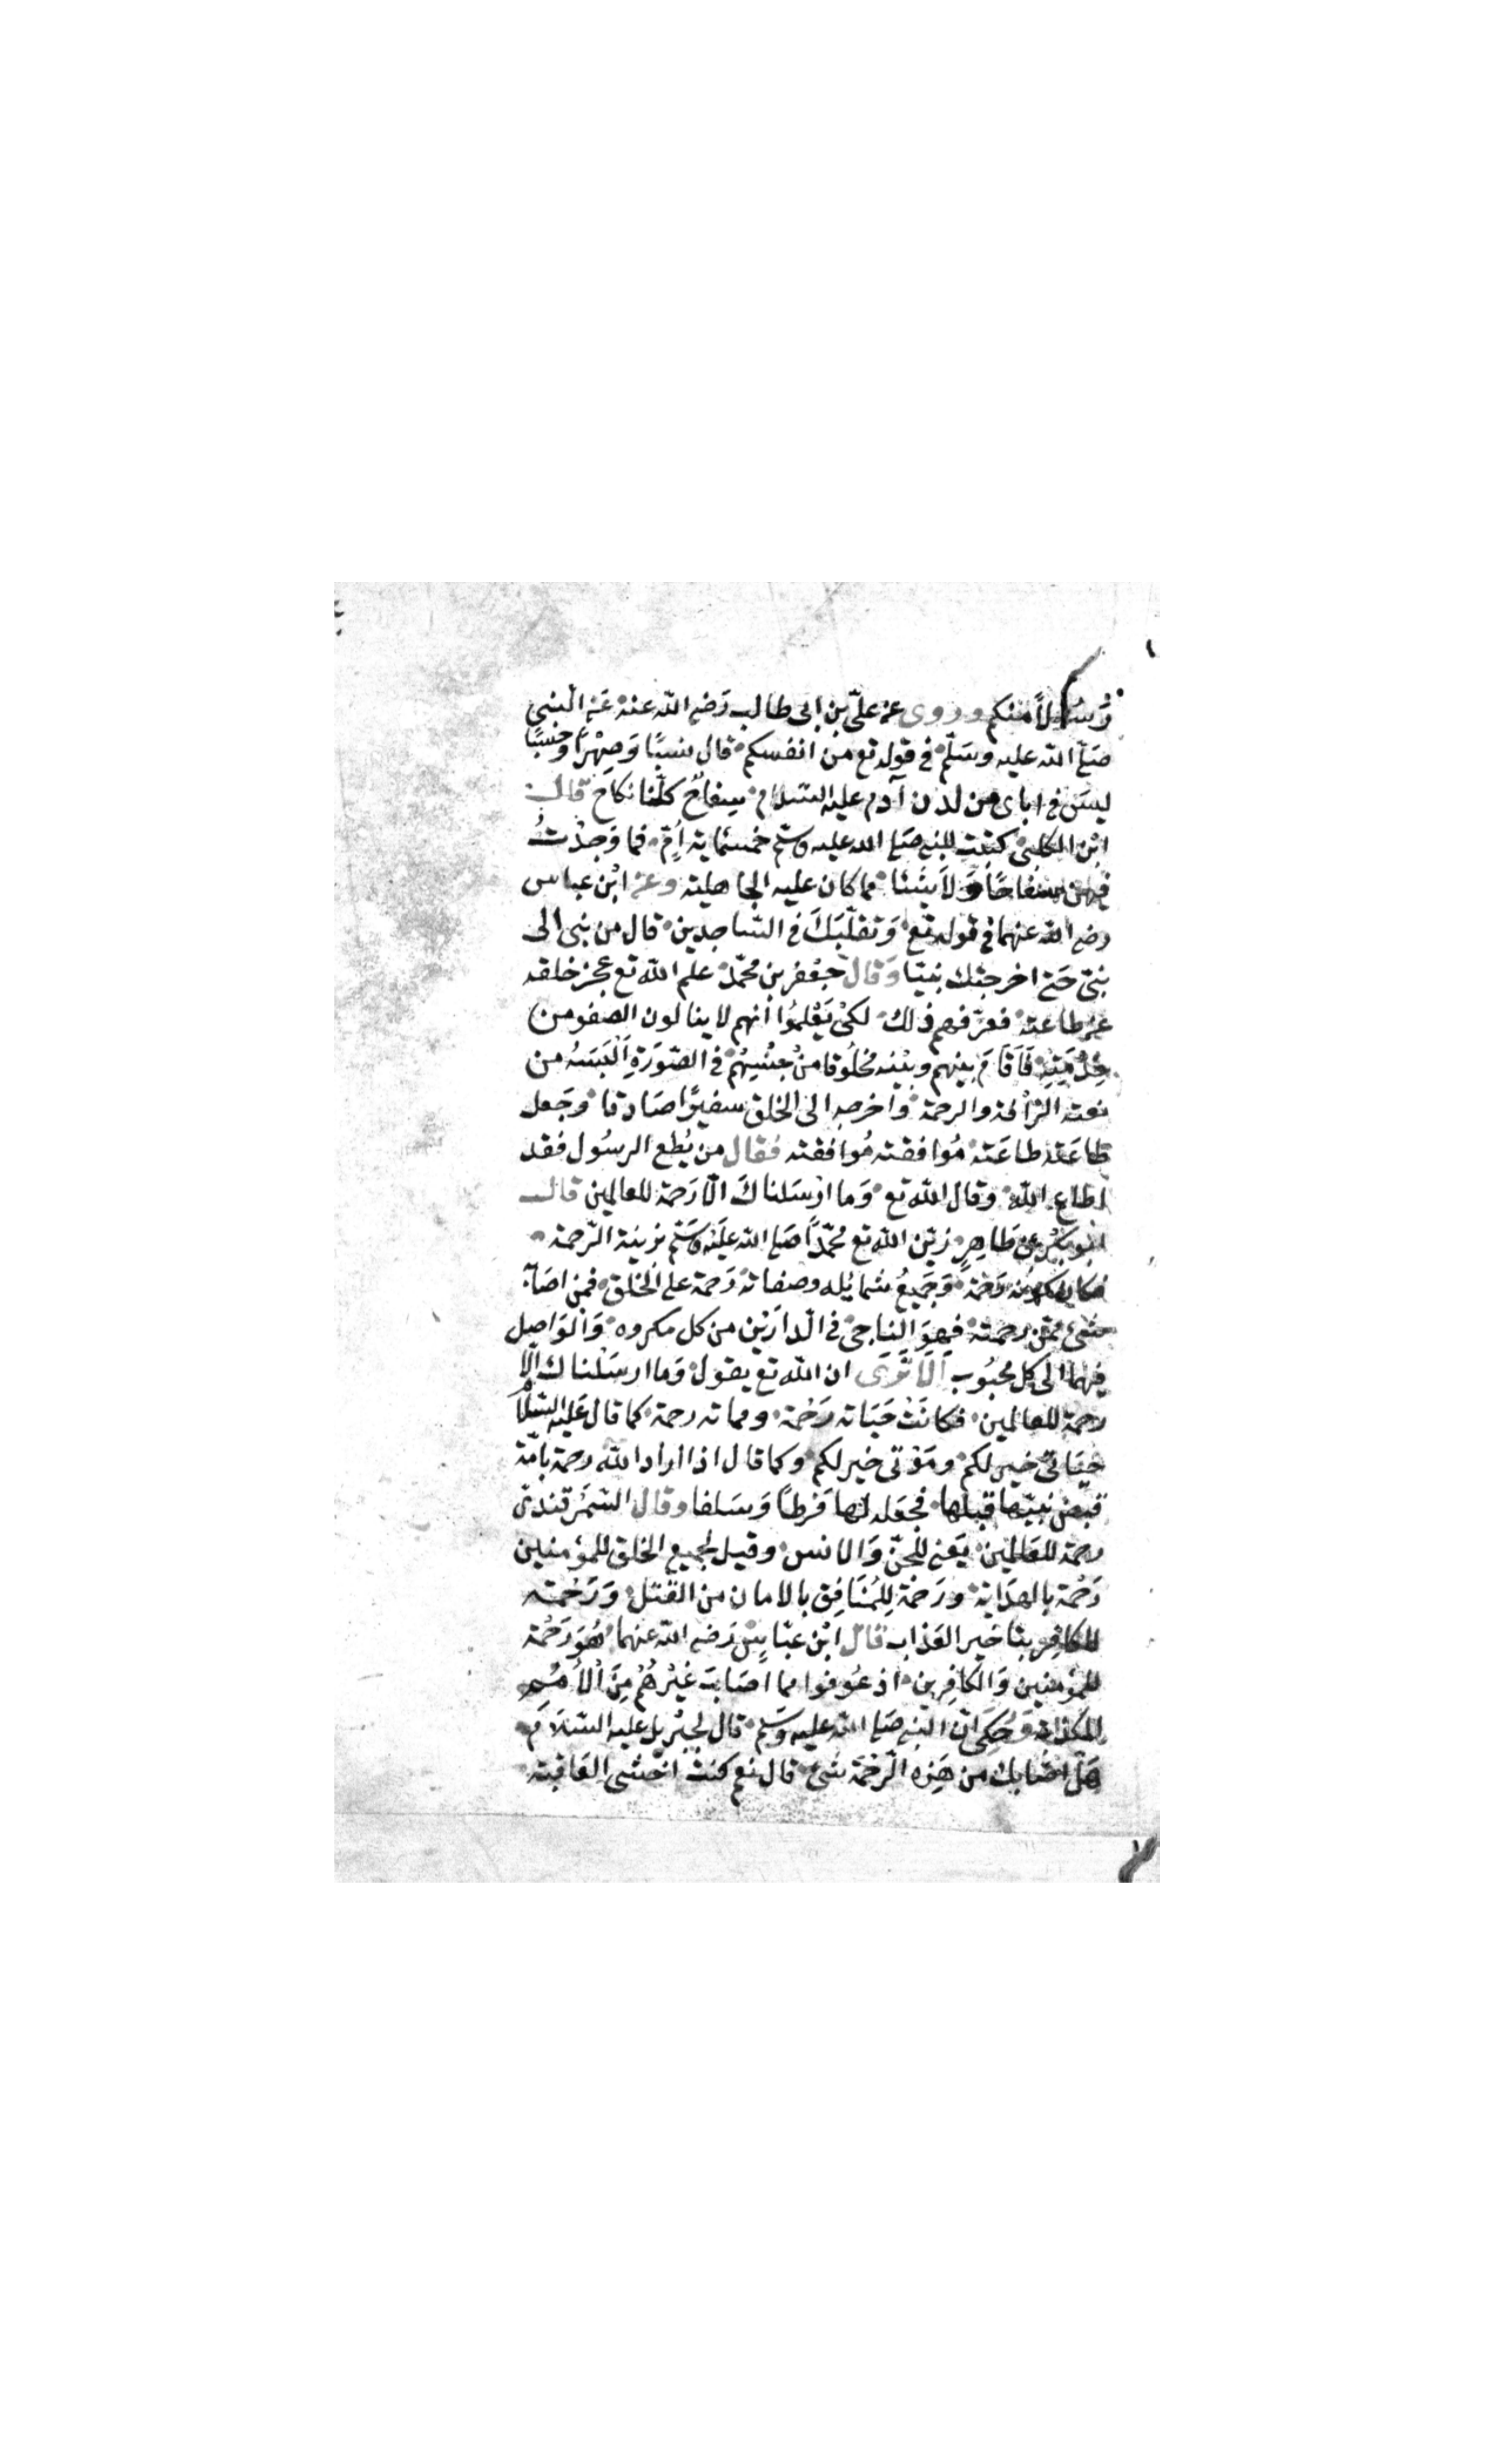 رَسُولاً منكم وروى عن علىّ بن ابى طالب رَضى الله عنهُ عَنِ النبي
صَلى الله عليه وسَلّم فى قوله تع من انفسكم قال نسبًا وَصِهْرًا وحَسَبًا
ليسَ فى اباى من لدن آدم عليه السَّلام سِفاحٌ كلّنا نكاح قال
ابْن الكلبى كتبت للنبى صَلى الله عليه وسَلّم خمسَماية اُمّ فما وَجدْتُ
فيهن سفاحًا وَلاَ شيئا مما كان عليه الجاهلية وعن ابْن عباس
رضى الله عنهما فى قوله تع وَتقلّبَكَ فى السّاجدين قال من نبى الى
نبىّ حَتى اخرجتك نبيّا وَقالَ جَعْفر بن محمّد علم الله تع عجز خلقه
عن طاعته فعرّفهم ذلك لكىْ يَعْلمُوا انهم لا ينالون الصفو من
خِدْمَتِهِ فَاَقَامَ بينهم وبَيْنه مخلُوقا منْ جِنْسِهِمْ فى الصّورَةِ اَلْبَسَهُ من
نعته الرّأفة والرحمة وَاخرجه الى الخلق سفيرًا صَادقا وجَعل
طاعَتهُ طاعَتهُ مُوافقته مُوافقته فقال من يُطع الرسُول فقد
اطاع الله وقال الله تع وَما ارْسَلناكَ الّا رَحمة للعالمين قال
ابو بَكْرِ بن طَاهِرٍ زيّن الله تع محمّدًا صَلى الله عَليْه وسَلّم بزينة الرّحمة
فكان كونُه رَحْمَة وَجَميعُ شمايُله وصفاته رَحمة على الخلق فمن اصَابَهُ
شئ من رحمته فهوَ النّاجى فى الدارَيْن من كل مكروه وَالوَاصِل
فيهما الى كل محبُوب اَلَا تَرَى ان الله تع يقول وَما ارسَلناك الّا
رحمة للعالمين فكانَتْ حَيَاته رَحْمة ومماته رحمة كما قال عَليْه السّلام
حيَاتى خير لكم ومَوْتى خير لكم وكما قال اذا اراد الله رحمة بامّة
قبض نبيّها قبلها فجعَله لها فَرطًا وَسَلفا وقال السّمَرْقندىّ
رحمة للعَالمِين يَعنى للجنّ وَالانس وقيل لجميع الخلق للمؤمنين
رَحْمة بالهدَاية ورَحْمة لِلمُنَافِق بالامان من القتل وَرَحْمة
للكافِر بتاخير العَذاب قال ابْن عبّاسٍ رَضى الله عنهما هُوَ رَحْمة
للمؤمنين وَالكافِرين اذ عُوفوا مما اصَابَ غيْرَهُمْ مِنَ الْأُمَمِ
المكذبة وَحُكىَ انّ النبى صَلى الله عليه وسَلّم قال لجبْريل عليه السّلَام
هَلْ اصَابك من هَذِه الرّحْمَة شئ قال نعم كنتُ اخشى العَاقبة